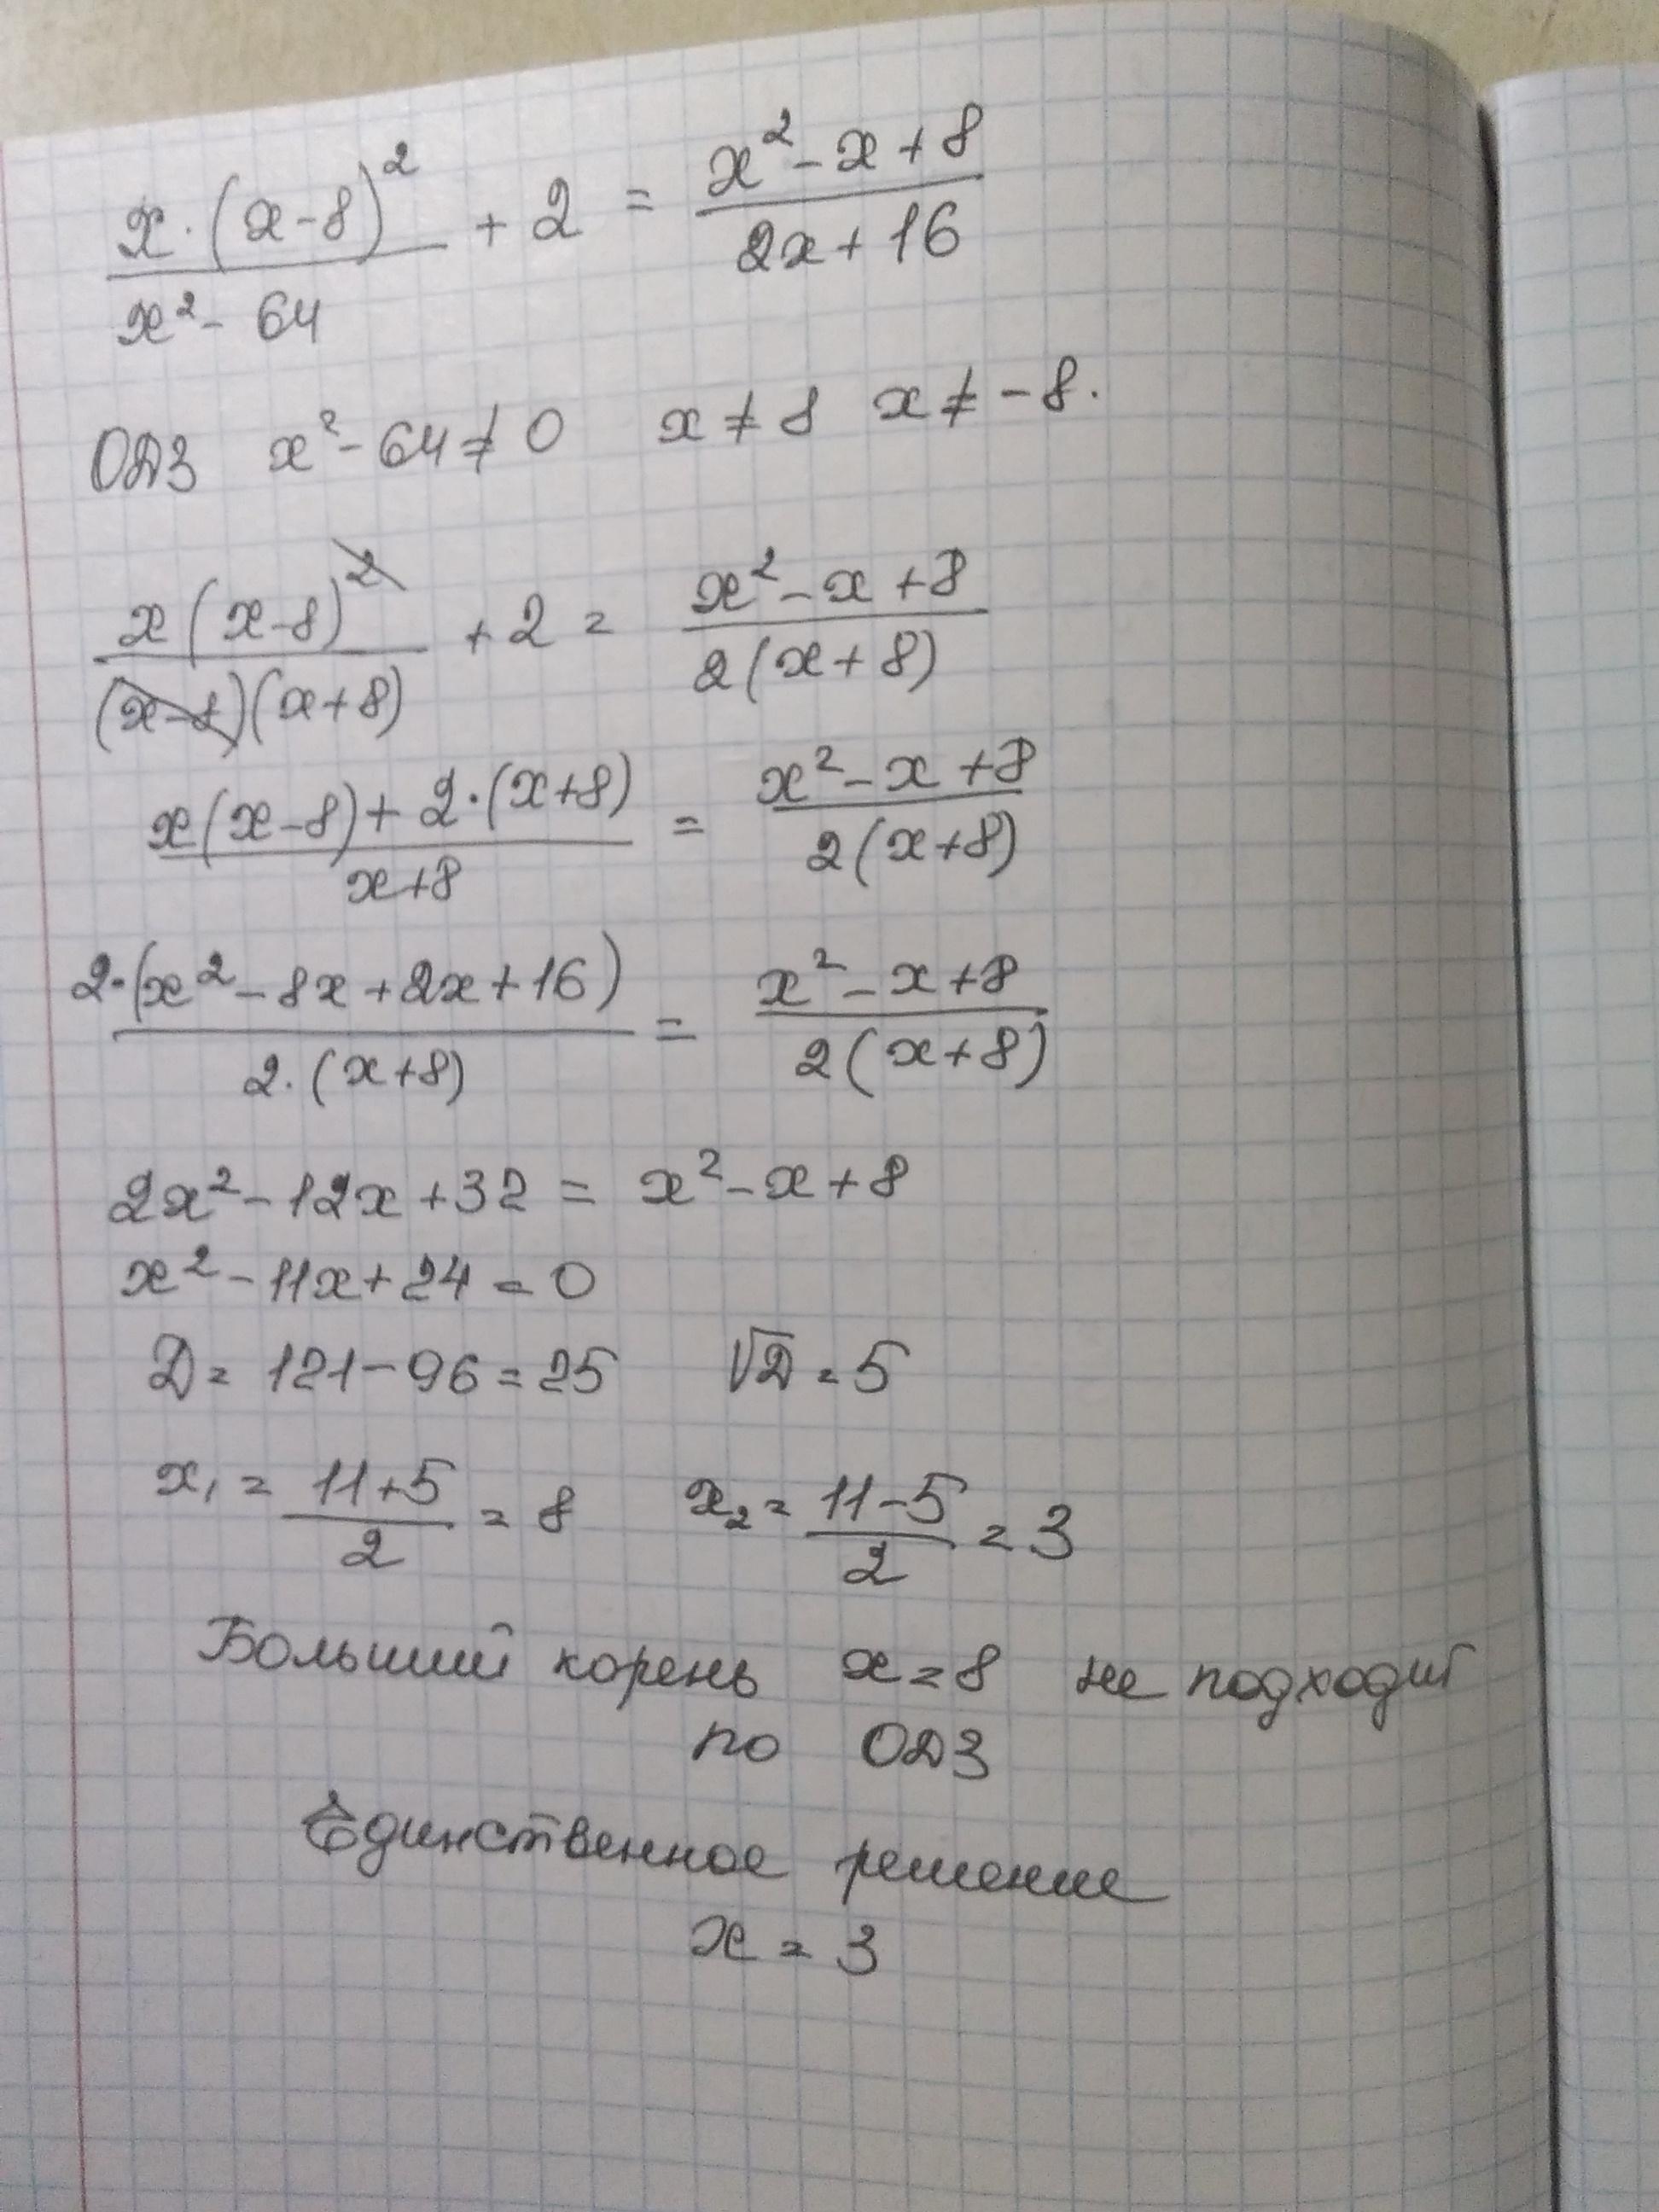 x·(x-8)²/(x²-64) + 2 = (x²-x+8)/(2x+16)
ОДЗ x²-64≠0 x≠8 x≠-8.
x(x-8)²/((x-8)(x+8)) + 2 = (x²-x+8)/(2(x+8))
(x(x-8)+2·(x+8))/(x+8) = (x²-x+8)/(2(x+8))
2·(x²-8x+2x+16)/(2·(x+8)) = (x²-x+8)/(2(x+8))
2x²-12x+32 = x²-x+8
x²-11x+24=0
D=121-96=25 √D=5
x₁=(11+5)/2=8 x₂=(11-5)/2=3
Больший корень x=8 не подходит
по ОДЗ
Единственное решение
x=3